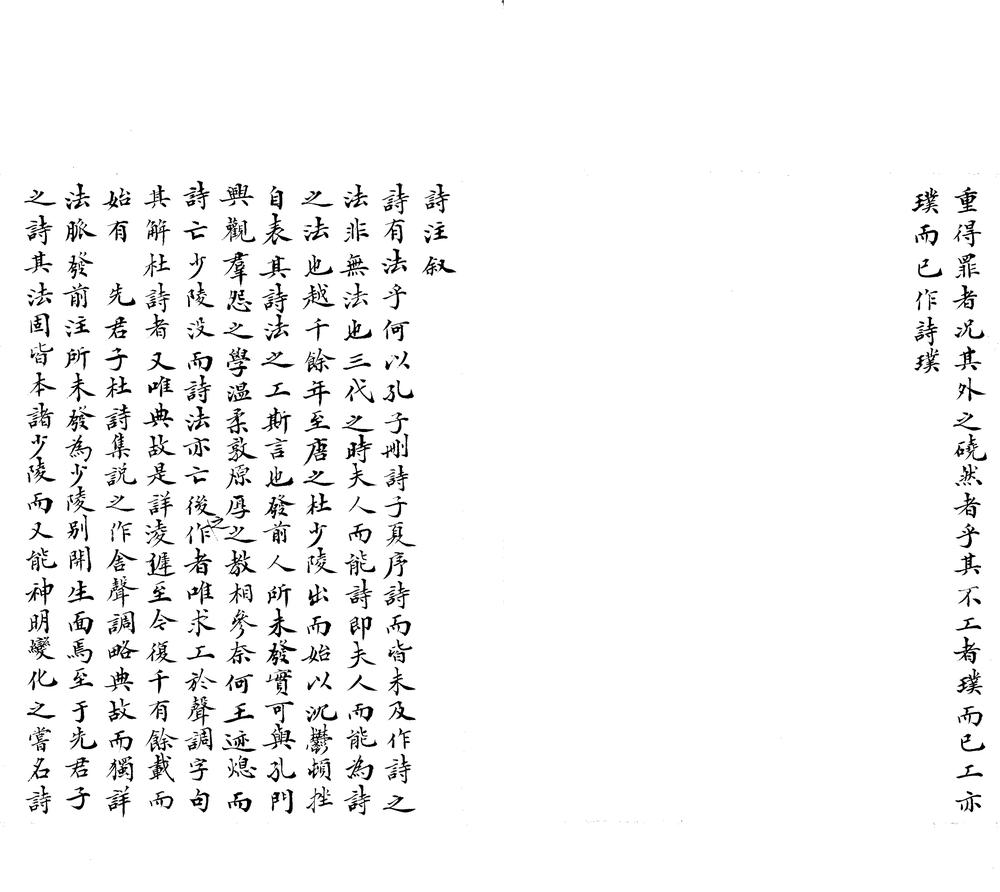 重得罪者况其外之磽然者乎其不工者璞而已工亦
璞而已作詩璞
詩注叙
詩有法乎何以孔子刪詩子夏序詩而皆未及作詩之
法非無法也三代之時夫人而能詩即夫人而能為詩
之法也越千餘年至唐之杜少陵出而始以沉鬱頓挫
自表其詩法之工斯言也發前人所未發實可與孔門
興觀羣怨之學溫柔敦厚之教相參奈何王迹熄而
詩亡少陵没而詩法亦亡後之作者唯求工於聲調字句
其解杜詩者又唯典故是詳淩遲至今復千有餘載而
始有　先君子杜詩集説之作舍聲調略典故而獨詳
法脈發前注所未發為少陵別開生面焉至于先君子
之詩其法固皆本諸少陵而又能神明變化之嘗名詩